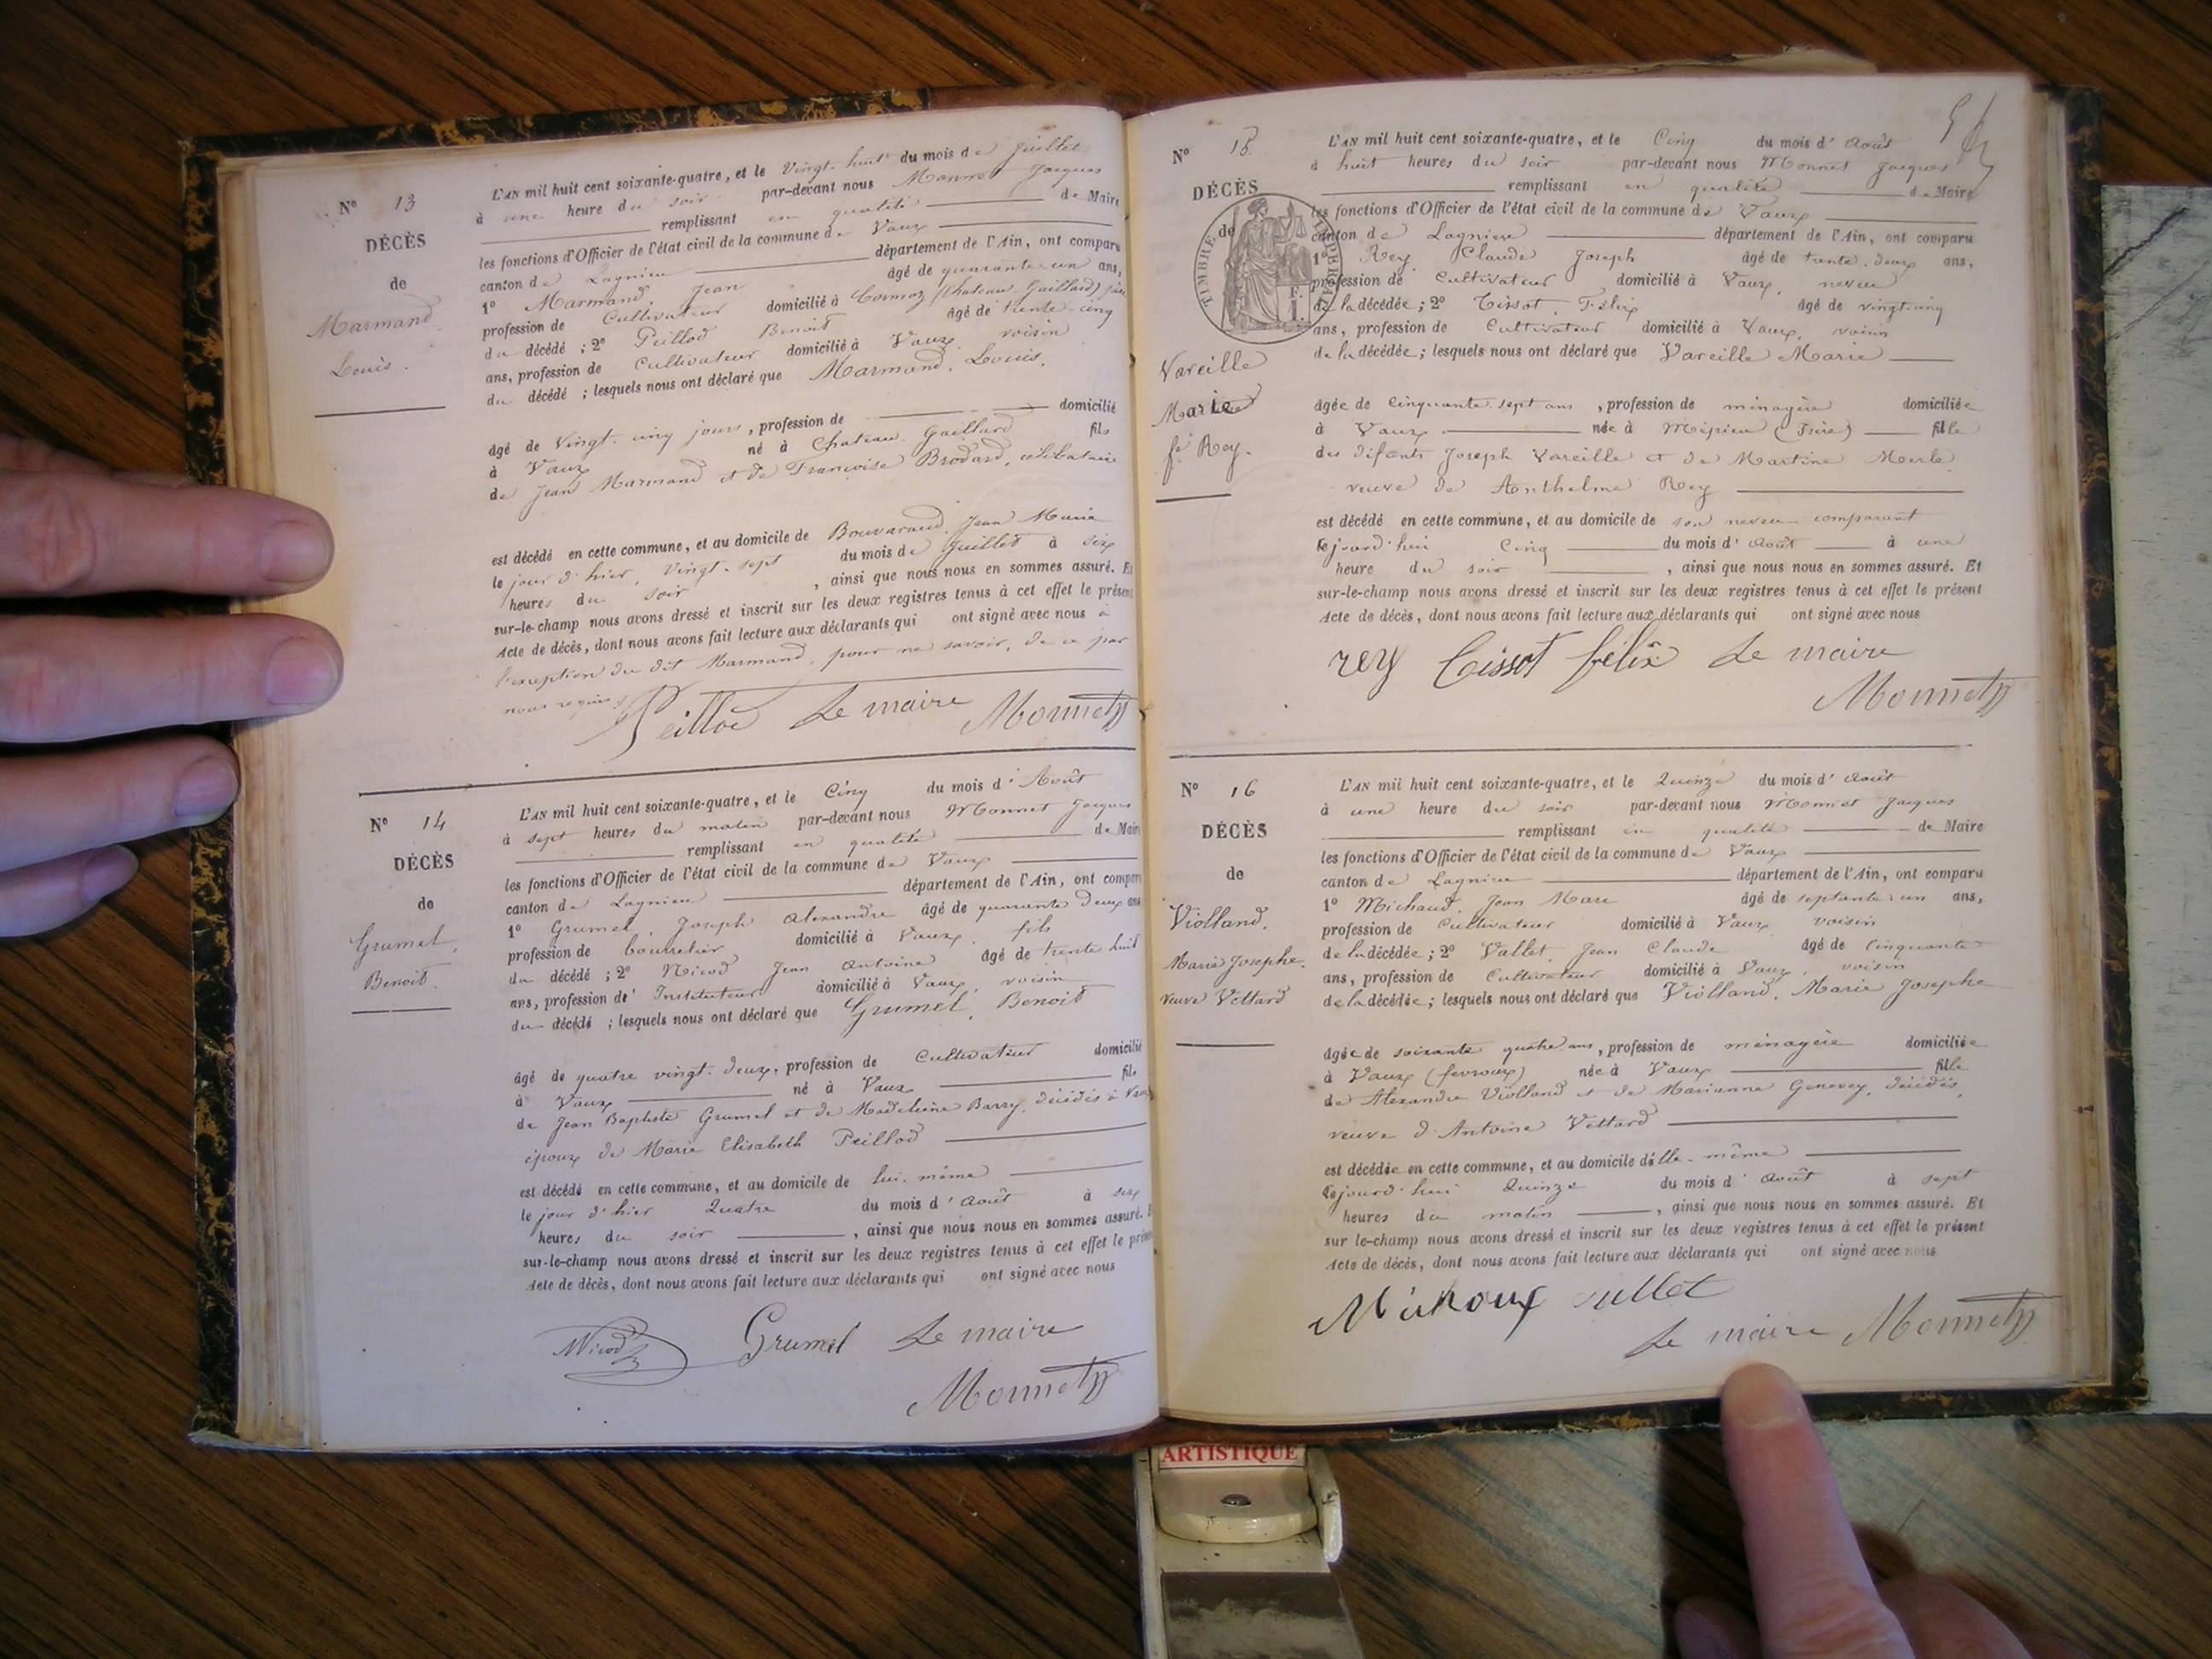 N° 13
DÉCÈS
de
Marmand
Louis.
L'AN mil huit cent soixante-quatre, et le Vingt-huit du mois de Juillet
à une heure du soir par-devant nous Monnet Jacques
remplissant en qualité de Maire
les fonctions d'Officier de l'état civil de la commune de Vaux
canton de Lagnieu département de l'Ain, ont comparu
1° Marmand, Jean âgé de quarante-un ans,
profession de Cultivateur domicilié à Cormoz (Chateau-Gaillard) père
du décédé ; 2° Peillod Benoit âgé de trente-cinq
ans, profession de Cultivateur domicilié à Vaux, voisin
du décédé ; lesquels nous ont déclaré que Marmand, Louis,
âgé de Vingt-cinq jours, profession de domicilié
à Vaux né à Chateau-Gaillard fils
de Jean Marmand et de Françoise Brodard, célibataire
est décédé en cette commune, et au domicile de Bouvarand Jean Marie
le jour d'hier, Vingt-sept du mois de Juillet à six
heures du soir, ainsi que nous nous en sommes assuré. Et
sur-le-champ nous avons dressé et inscrit sur les deux registres tenus à cet effet le présent
Acte de décès, dont nous avons fait lecture aux déclarants qui ont signé avec nous à
l'exception du dit Marmand, pour ne savoir, de ce par
nous requis
Peillod Le maire Monnet
N° 14
DÉCÈS
de
Grumel,
Benoit.
L'AN mil huit cent soixante-quatre, et le Cinq du mois d'Août
à sept heures du matin par-devant nous Monnet Jacques
remplissant en qualité de Maire
les fonctions d'Officier de l'état civil de la commune de Vaux
canton de Lagnieu département de l'Ain, ont comparu
1° Grumel, Joseph Alexandre âgé de quarante deux ans
profession de bourrelier domicilié à Vaux, fils
du décédé ; 2° Nicod Jean Antoine âgé de trente huit
ans, profession d'Instituteur domicilié à Vaux, voisin
du décédé ; lesquels nous ont déclaré que Grumel, Benoit
âgé de quatre vingt-deux, profession de Cultivateur domicilié
à Vaux né à Vaux fils
de Jean Baptiste Grumel et de Madeleine Barry, décédés à Vaux
époux de Marie Elisabeth Peillod
est décédé en cette commune, et au domicile de lui-même
le jour d'hier Quatre du mois d'Août à six
heures du soir, ainsi que nous nous en sommes assuré.
sur-le-champ nous avons dressé et inscrit sur les deux registres tenus à cet effet le présent
Acte de décès, dont nous avons fait lecture aux déclarants qui ont signé avec nous
Nicod Grumel Le maire
Monnet
N° 15
DÉCÈS
de
TIMBRE IMPERIAL
Vareille
Marie
fe Rey.
L'AN mil huit cent soixante-quatre, et le Cinq du mois d'Août
à huit heures du soir par-devant nous Monnet Jacques
remplissant en qualité de Maire
les fonctions d'Officier de l'état civil de la commune de Vaux
canton de Lagnieu département de l'Ain, ont comparu
1° Rey Claude Joseph âgé de trente-deux ans,
profession de Cultivateur domicilié à Vaux, neveu
de la décédée ; 2° Tissot, Félix âgé de vingt-cinq
ans, profession de Cultivateur domicilié à Vaux, voisin
de la décédée ; lesquels nous ont déclaré que Vareille Marie
âgée de Cinquante-sept ans, profession de ménagère domiciliée
à Vaux née à Mépieu (Isère) fille
des défunts Joseph Vareille et de Martine Merle
veuve de Anthelme Rey
est décédé en cette commune, et au domicile de son neveu comparant
cejourd'hui Cinq du mois d'Août à une
heure du soir, ainsi que nous nous en sommes assuré. Et
sur-le-champ nous avons dressé et inscrit sur les deux registres tenus à cet effet le présent
Acte de décès, dont nous avons fait lecture aux déclarants qui ont signé avec nous
rey tissot félix Le maire
Monnet
N° 16
DÉCÈS
de
Violland,
Marie Josephe.
veuve Vettard
L'AN mil huit cent soixante-quatre, et le Quinze du mois d'Août
à une heure du soir par-devant nous Monnet Jacques
remplissant en qualité de Maire
les fonctions d'Officier de l'état civil de la commune de Vaux
canton de Lagnieu département de l'Ain, ont comparu
1° Michaud, Jean Marc âgé de septante-un ans,
profession de Cultivateur domicilié à Vaux voisin
de la décédée ; 2° Vallet, Jean Claude âgé de Cinquante
ans, profession de Cultivateur domicilié à Vaux, voisin
de la décédée ; lesquels nous ont déclaré que Violland, Marie Josephe
âgée de soixante quatre ans, profession de ménagère domiciliée
à Vaux (fevroux) née à Vaux fille
de Alexandre Violland et de Marianne Genevey, décédés,
veuve d'Antoine Vettard
est décédée en cette commune, et au domicile d'elle-même
cejourd'hui Quinze du mois d'Août à sept
heures du matin, ainsi que nous nous en sommes assuré. Et
sur le-champ nous avons dressé et inscrit sur les deux registres tenus à cet effet le présent
Acte de décès, dont nous avons fait lecture aux déclarants qui ont signé avec nous
Michoux vallet
Le maire Monnet
ARTISTIQUE